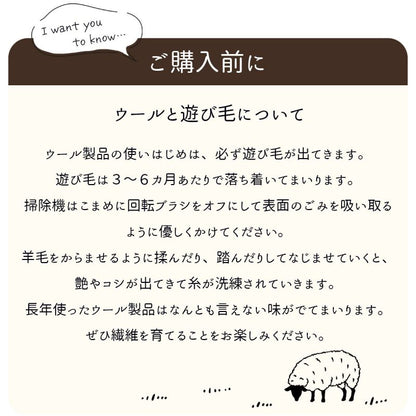 I want you
to know...
ご購入前に
ウールと遊び毛について
ウール製品の使いはじめは、必ず遊び毛が出てきます。
遊び毛は３～６カ月あたりで落ち着いてまいります。
掃除機はこまめに回転ブラシをオフにして表面のごみを吸い取る
ように優しくかけてください。
羊毛をからませるように揉んだり、踏んだりしてなじませていくと、
艶やコシが出てきて糸が洗練されていきます。
長年使ったウール製品はなんとも言えない味がでてまいります。
ぜひ繊維を育てることをお楽しみください。